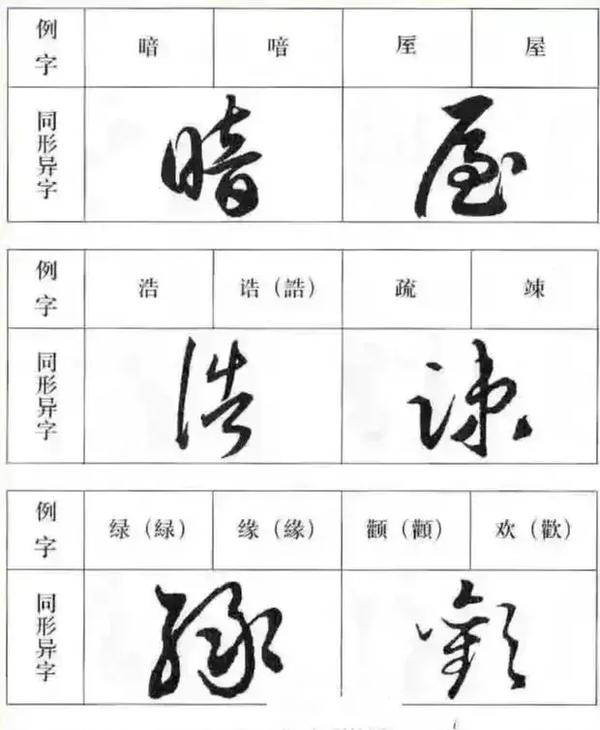 例字 暗 喑 厔 屋
同形异字
例字 浩 诰（誥） 疏 竦
同形异字
例字 绿（綠） 缘（緣） 颧（顴） 欢（歡）
同形异字